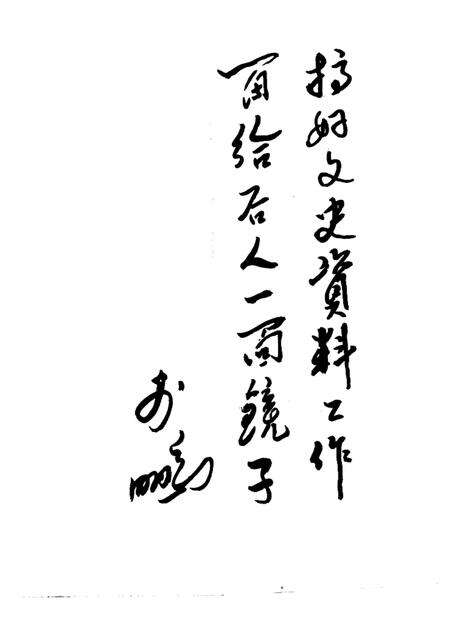 搞好文史資料工作
留给后人一面鏡子